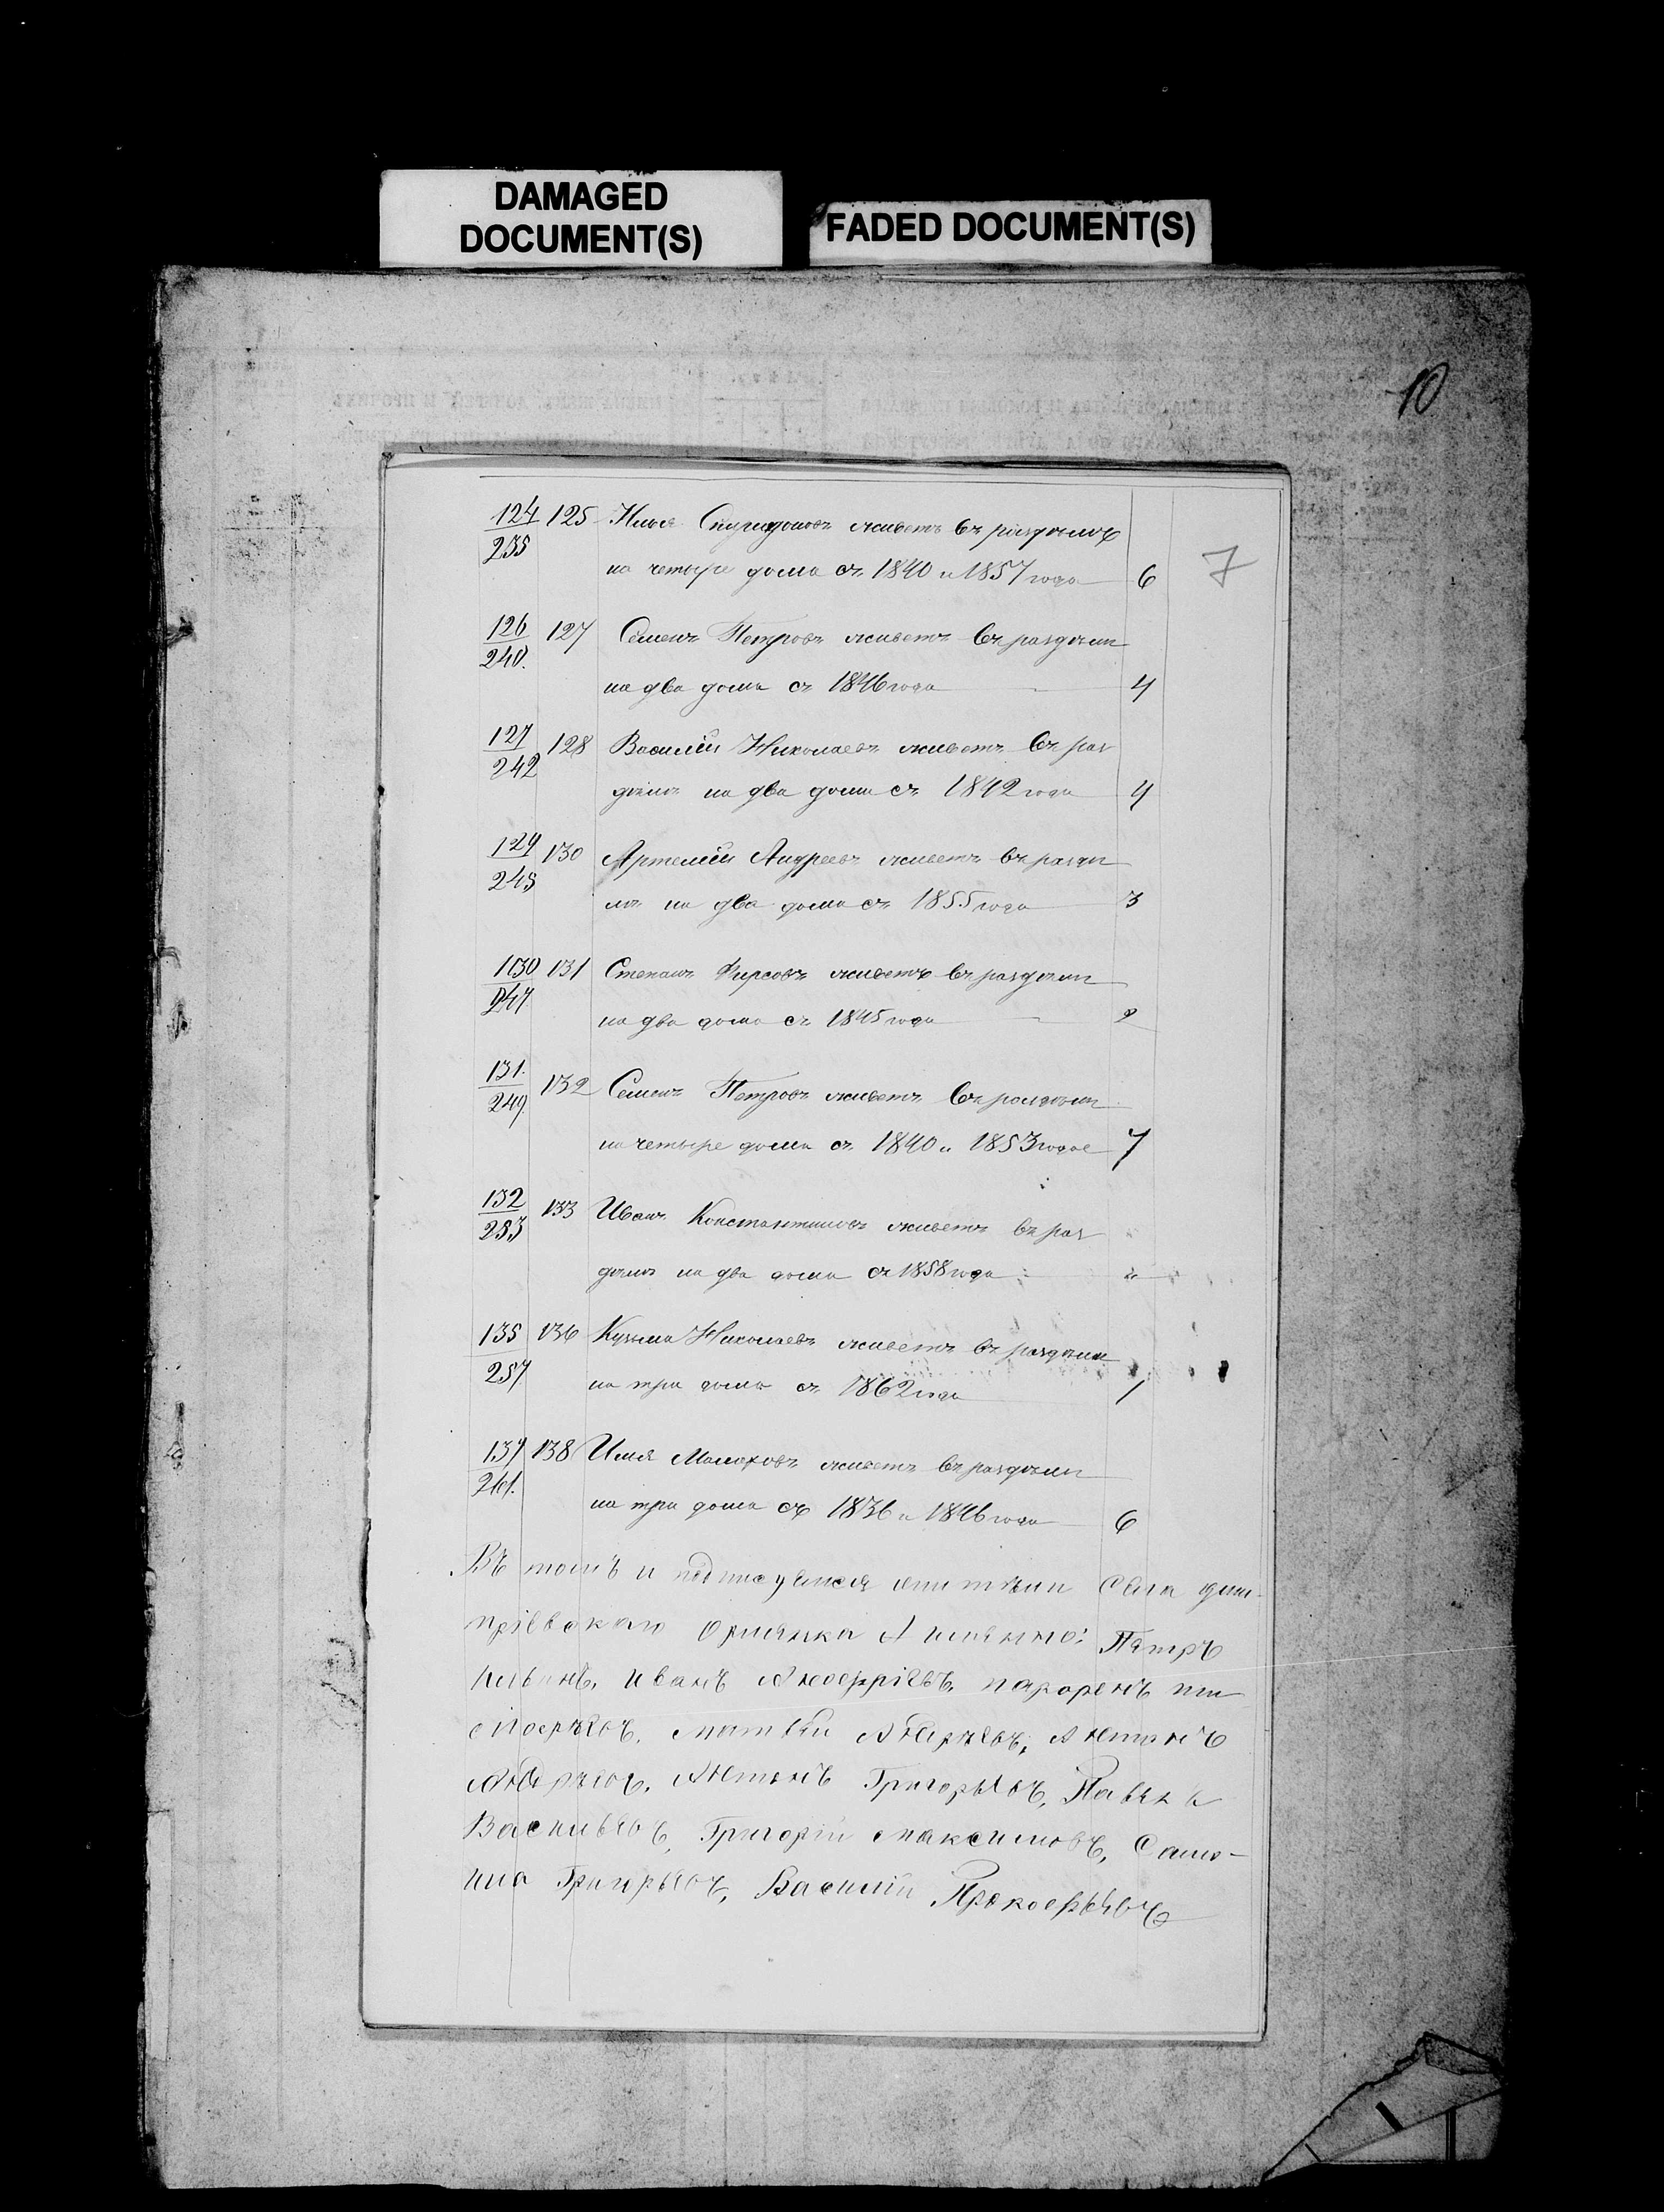 DAMAGED
DOCUMENT(S)
FADED DOCUMENT(S)
10
7
124 125 Илья Спиридоновъ живетъ въ раздѣлѣ
235 на четыре дома съ 1840 и 1857 года 6
126 127 Семенъ Петровъ живетъ въ раздѣли
240. на два дома съ 1846 года 4
127 128 Василій Николаевъ живетъ въ раз
242 дѣлѣ на два дома съ 1842 года 4
129 130 Артемій Андреевъ живетъ въ разди
245 лѣ на два дома съ 1855 года 3
130 131 Степанъ Фирсовъ живетъ въ раздѣли
247 на два дома съ 1845 года 2
131. 132 Семенъ Петровъ живетъ въ раздѣли
249 на четыре дома съ 1840 и 1853 года 7
132 133 Иванъ Константиновъ живетъ въ раз
253 дѣлѣ на два дома съ 1858 года "
135 136 Кузьма Николаевъ живетъ въ раздѣли
257 на три дома съ 1862 года 1
137 138 Илья Малаховъ живетъ въ раздѣли
261. на три дома съ 1836 и 1846 года 6
Въ томъ и подписуемся Села Дми-
тріевскаго Петръ
Иванъ
Матвѣй Антонъ
Антонъ Григорьевъ, Павелъ
Васильевъ, Григорій Максимовъ, Само-
ила Григорьевъ, Василий Прокофьевъ